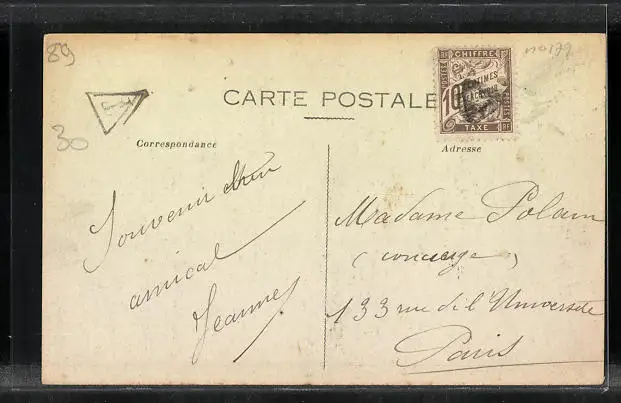 89
no 179
T
30
CARTE POSTALE
POSTES RF
CHIFFRE
10 CENTIMES
A PERCEVOIR
TAXE
RF
Correspondance
Adresse
Souvenir
amical
Jeanne
Madame Polain
(concierge)
133 rue de l'Université
Paris